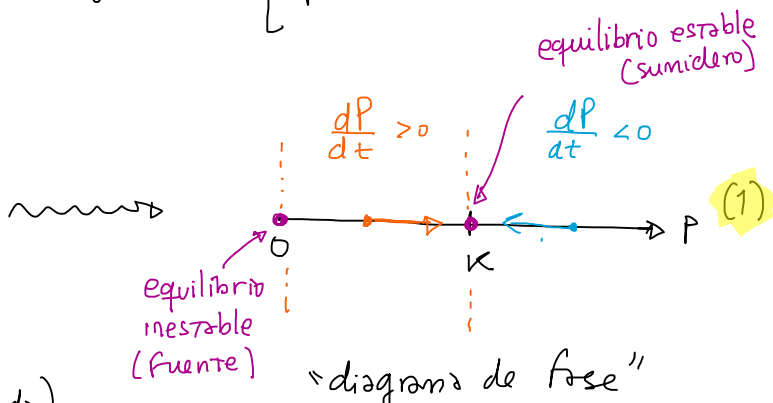 equilibrio estable
(sumidero)
dP/dt > 0
dP/dt < 0
(1)
0
K
P
equilibrio
inestable
(fuente)
"diagrama de fase"